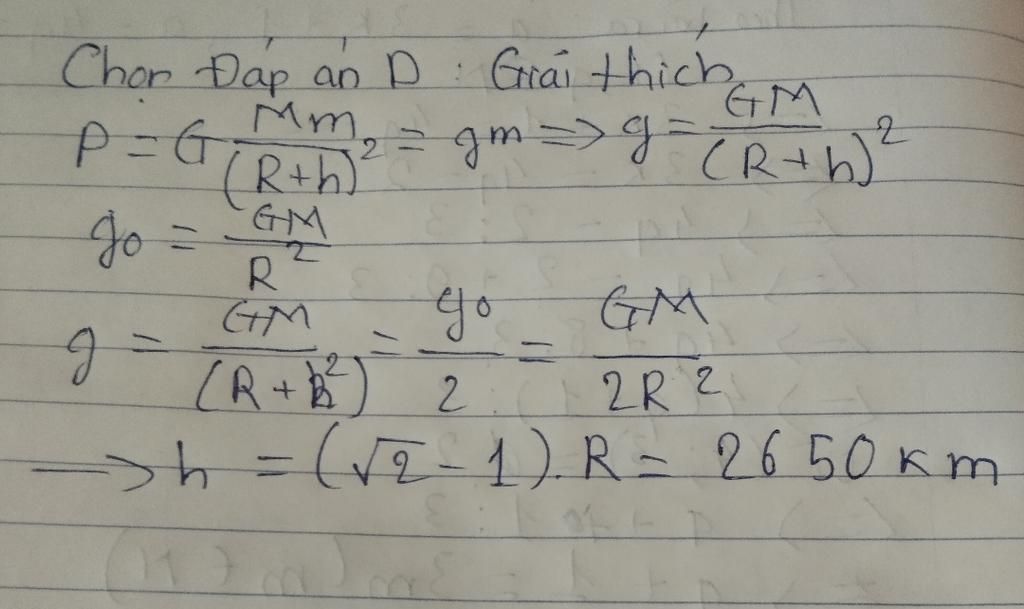 Chọn Đáp án D : Giải thích
P = G Mm/(R+h)² = gm => g = GM/(R+h)²
go = GM/R²
g = GM/(R+h²) = go/2 = GM/2R²
=> h = (√2 - 1). R = 2650 km